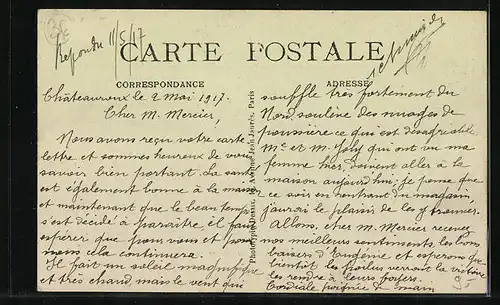 Repondu 11/5/17
CARTE POSTALE
CORRESPONDANCE
ADRESSE
Châteauroux le 2 Mai 1917.
Cher M. Mercier,
Nous avons reçu votre carte
lettre et sommes heureux de vous
savoir bien portant. La santé
est également bonne à la maison
et maintenant que le beau temps
s'est décidé à paraître il faut
espérer que pour vous et pour
nous cela continuera.
Il fait un soleil magnifique
et très chaud mais le vent qui
souffle très fortement du
Nord, soulève des nuages de
poussière ce qui est désagréable.
Me et M. Joly qui ont vu ma
femme hier, doivent aller à la
maison aujourd'hui, je pense que
ce soir en rentrant du magasin,
j'aurai le plaisir de les y trouver.
Allons, cher M. Mercier recevez
nos meilleurs sentiments, les bons
baisers d'Eugénie et espérons que
bientôt les poilus verront la victoire
les rendre à leurs foyers
Cordiale poignée de main
Paris